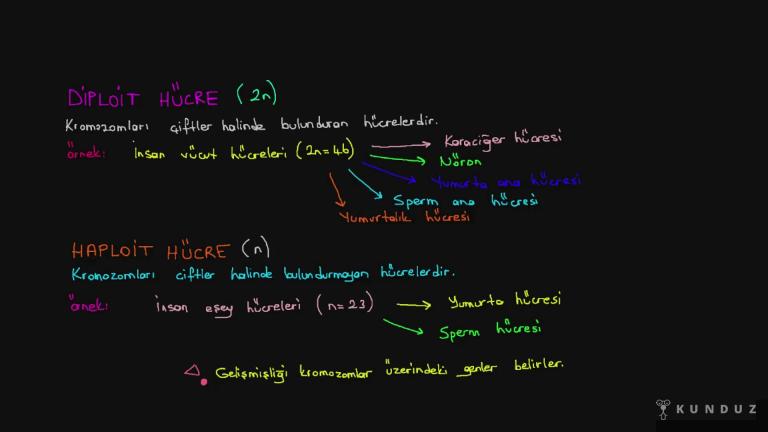 DİPLOİT HÜCRE (2n)
Kromozomları çiftler halinde bulunduran hücrelerdir.
örnek: İnsan vücut hücreleri (2n=46)
Karaciğer hücresi
Nöron
Yumurta ana hücresi
Sperm ana hücresi
Yumurtalık hücresi
HAPLOİT HÜCRE (n)
Kromozomları çiftler halinde bulundurmayan hücrelerdir.
örnek: İnsan eşey hücreleri (n=23)
Yumurta hücresi
Sperm hücresi
Gelişmişliği kromozomlar üzerindeki genler belirler.
KUNDUZ